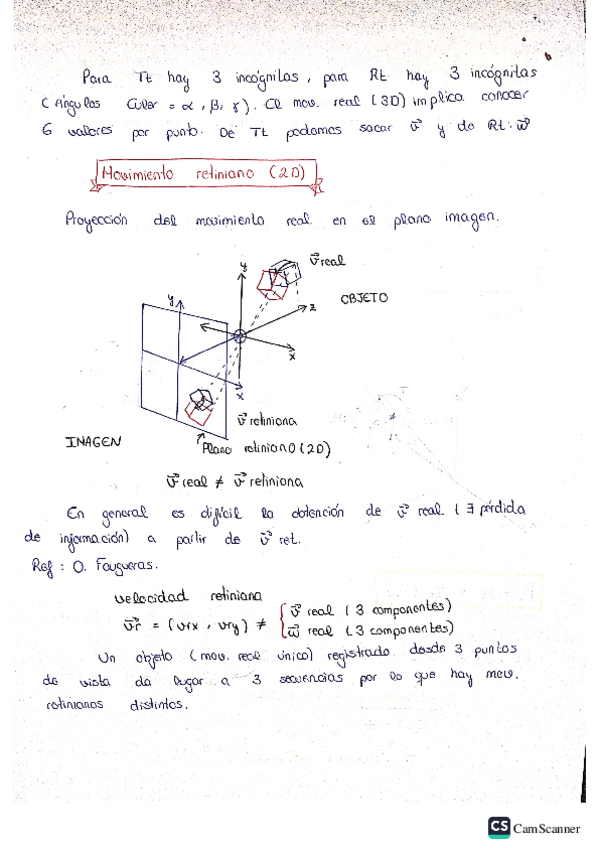 Para Tt hay 3 incógnitas, para Rt hay 3 incógnitas
(Ángulos Euler = α, β, γ). El mov. real (3D) implica conocer
6 valores por punto. De Tt podemos sacar v⃗ y de Rt: w⃗
Movimiento retiniano (2D)
Proyección del movimiento real en el plano imagen.
y
v⃗ real
z
OBJETO
y
x
x
v⃗ retiniana
INAGEN
Plano retiniano (2D)
v⃗ real ≠ v⃗ retiniana
En general es difícil la obtención de v⃗ real (∃ pérdida
de información) a partir de v⃗ ret.
Ref: O. Faugueras.
velocidad retiniana
v⃗r = (vrx, vry) ≠ { v⃗ real (3 componentes)
w⃗ real (3 componentes)
Un objeto (mov. real único) registrado desde 3 puntos
de vista da lugar a 3 secuencias por lo que hay mov.
retinianos distintos.
CS CamScanner